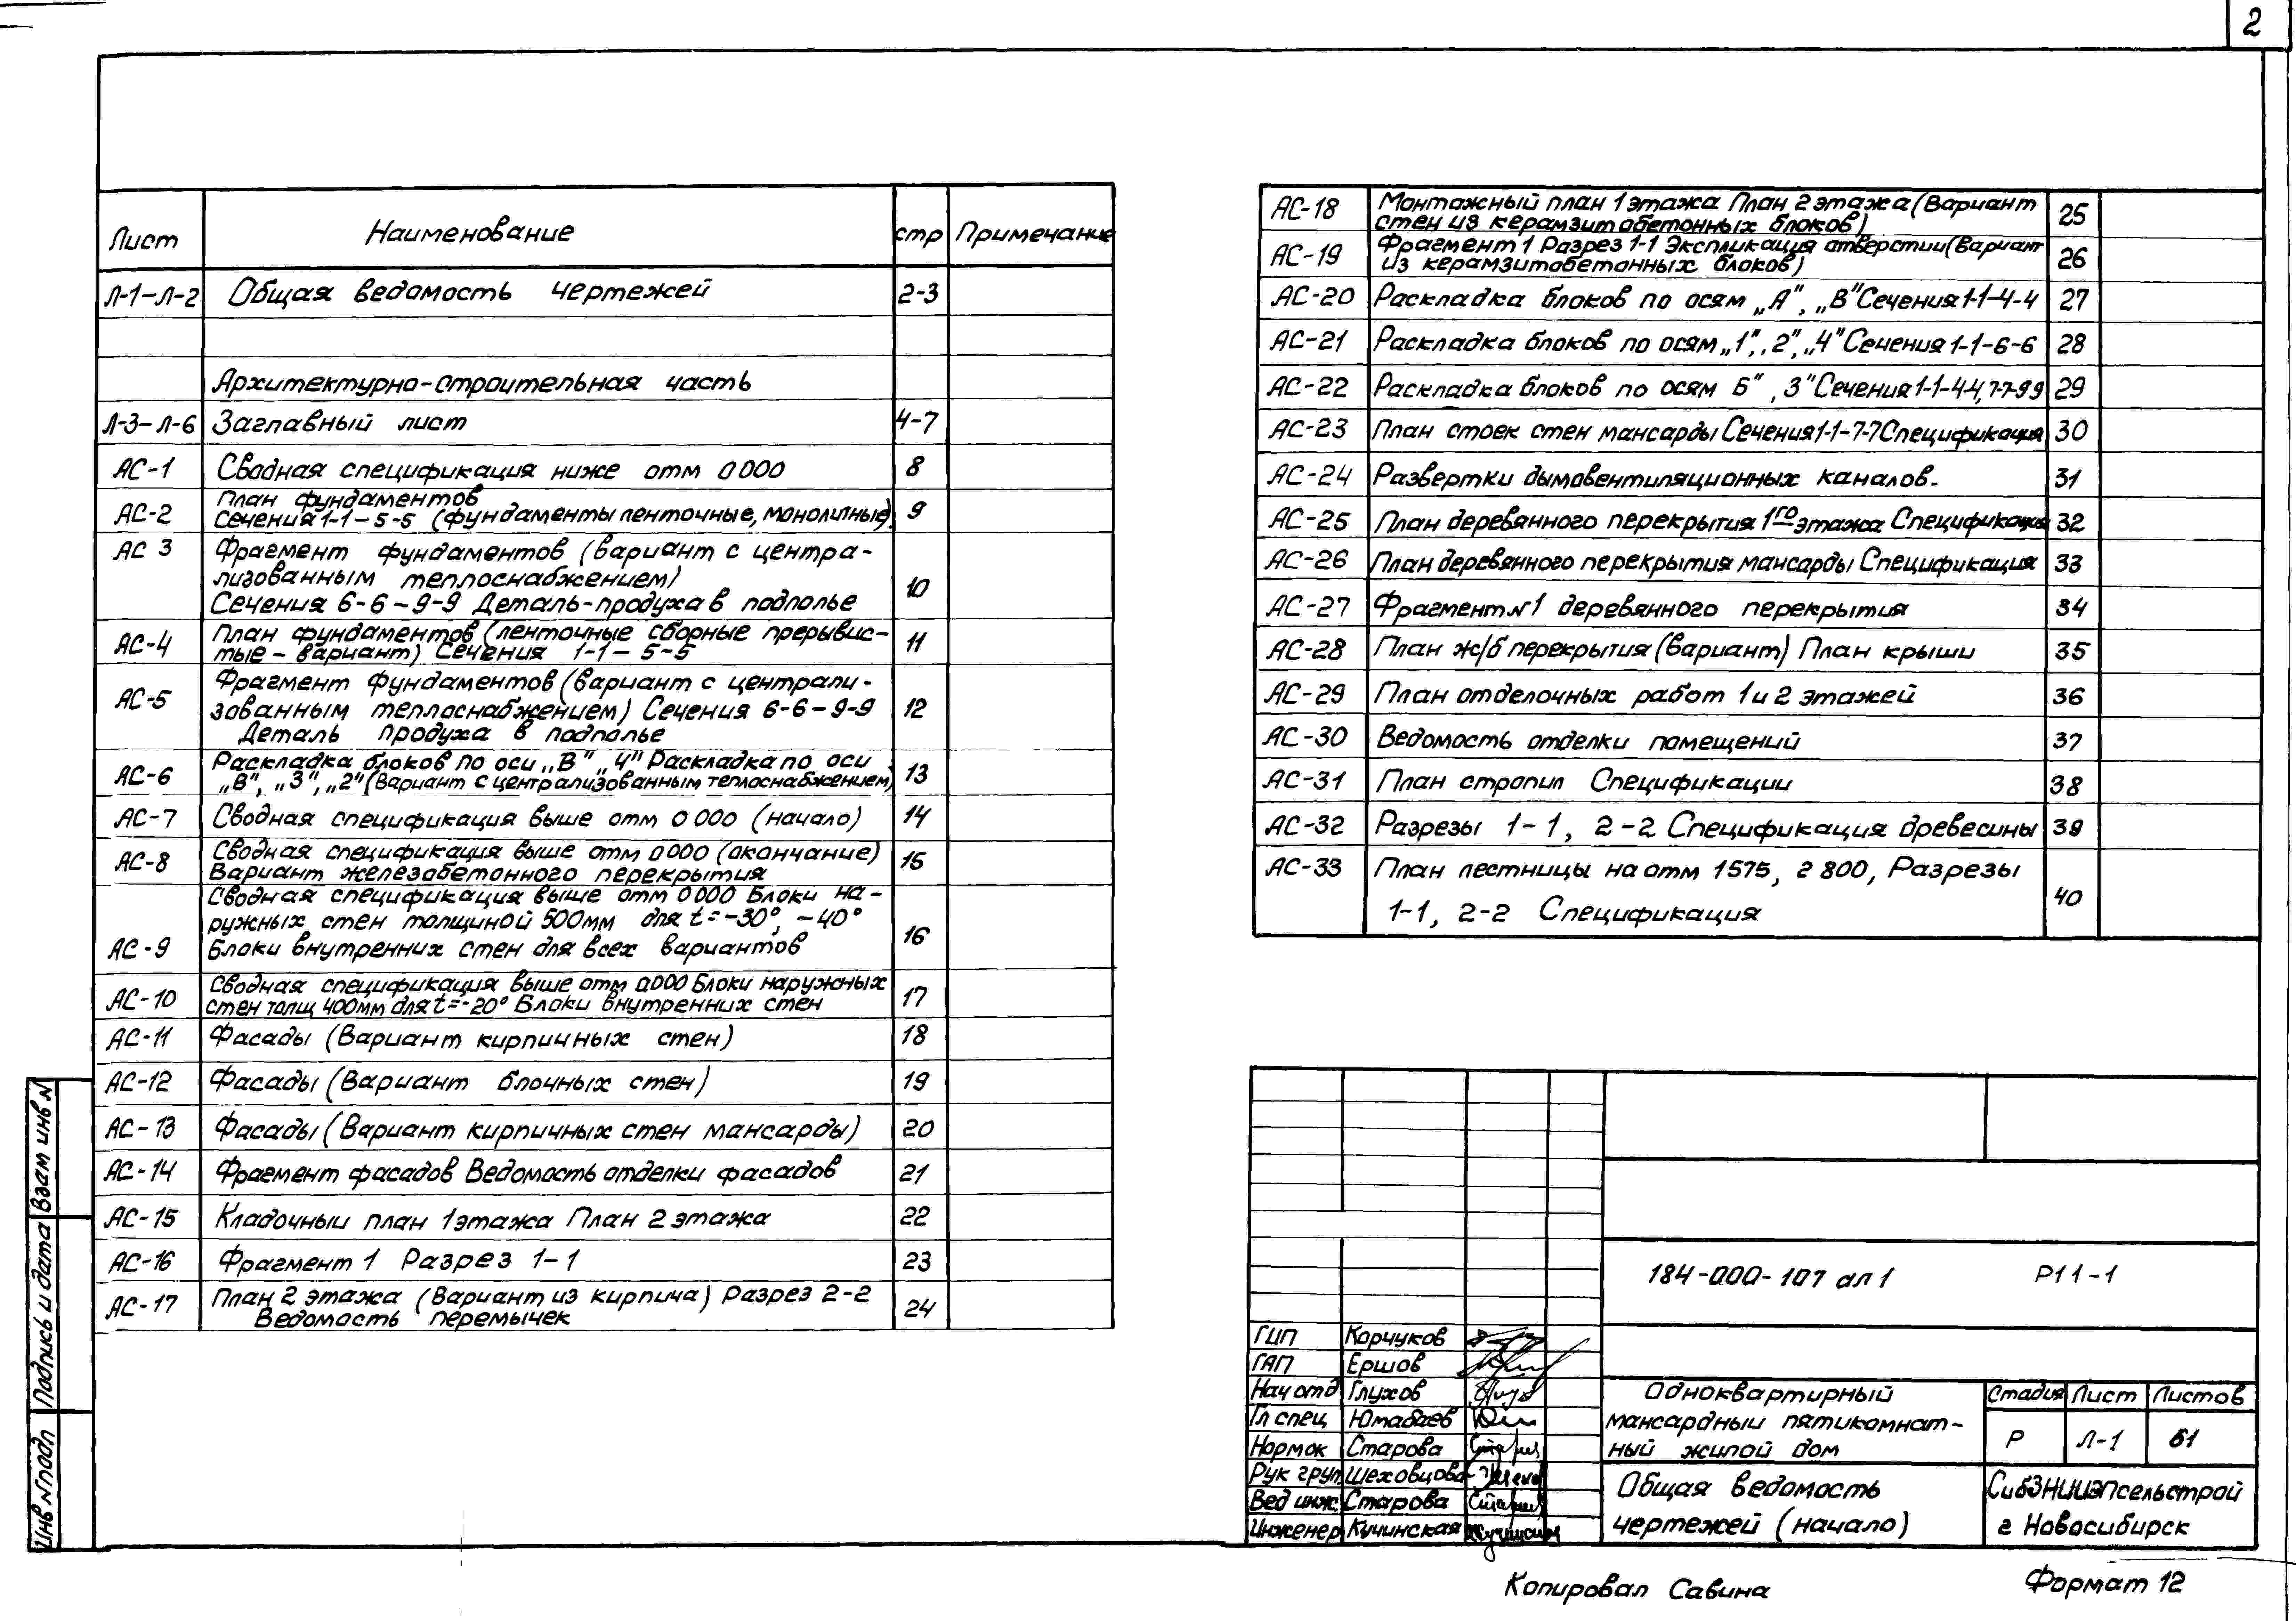 2
Лист Наименование стр Примечание
Л-1-Л-2 Общая ведомость чертежей 2-3
Архитектурно-строительная часть
Л-3-Л-6 Заглавный лист 4-7
АС-1 Сводная спецификация ниже отм 0000 8
АС-2 План фундаментов
Сечения 1-1-5-5 (фундаменты ленточные, монолитные) 9
АС 3 Фрагмент фундаментов (вариант с центра-
лизованным теплоснабжением)
Сечения 6-6-9-9 Деталь-продуха в подполье 10
АС-4 План фундаментов (ленточные сборные прерывис-
тые-вариант) Сечения 1-1-5-5 11
АС-5 Фрагмент фундаментов (вариант с централи-
зованным теплоснабжением) Сечения 6-6-9-9 12
Деталь продуха в подполье
АС-6 Раскладка блоков по оси „В" „4" Раскладка по оси
„В", „3", „2" (Вариант с централизованным теплоснабжением) 13
АС-7 Сводная спецификация выше отм 0000 (начало) 14
АС-8 Сводная спецификация выше отм 0000 (окончание)
Вариант железобетонного перекрытия 15
Сводная спецификация выше отм 0000 Блоки на-
ружных стен толщиной 500мм для t=-30°, -40°
АС-9 Блоки внутренних стен для всех вариантов 16
АС-10 Сводная спецификация выше отм 0000 Блоки наружных
стен толщ 400мм для t=-20° Блоки внутренних стен 17
АС-11 Фасады (Вариант кирпичных стен) 18
АС-12 Фасады (Вариант блочных стен) 19
АС-13 Фасады (Вариант кирпичных стен мансарды) 20
АС-14 Фрагмент фасадов Ведомость отделки фасадов 21
АС-15 Кладочныи план 1этажа План 2 этажа 22
АС-16 Фрагмент 1 Разрез 1-1 23
АС-17 План 2 этажа (Вариант из кирпича) Разрез 2-2
Ведомость перемычек 24
АС-18 Монтажный план 1этажа План 2 этажа (Вариант
стен из керамзитобетонных блоков) 25
АС-19 Фрагмент 1 Разрез 1-1 Экспликация отверстии (Вариант
из керамзитобетонных блоков) 26
АС-20 Раскладка блоков по осям „А", „В" Сечения 1-1-4-4 27
АС-21 Раскладка блоков по осям „1", „2", „4" Сечения 1-1-6-6 28
АС-22 Раскладка блоков по осям Б", 3" Сечения 1-1-4-4, 7-7-9 9 29
АС-23 План стоек стен мансарды Сечения 1-1-7-7 Спецификация 30
АС-24 Развертки дымовентиляционных каналов. 31
АС-25 План деревянного перекрытия 1го этажа Спецификация 32
АС-26 План деревянного перекрытия мансарды Спецификация 33
АС-27 Фрагмент N1 деревянного перекрытия 34
АС-28 План ж/б перекрытия (вариант) План крыши 35
АС-29 План отделочных работ 1 и 2 этажей 36
АС-30 Ведомость отделки помещений 37
АС-31 План стропил Спецификации 38
АС-32 Разрезы 1-1, 2-2 Спецификация древесины 39
АС-33 План лестницы на отм 1575, 2 800, Разрезы
1-1, 2-2 Спецификация 40
184-000-107 ал 1 Р11-1
ГИП Корчуков
ГАП Ершов
Нач отд Глухов
Гл спец Юмабаев
Нормок Старова
Рук груп Шеховцова
Вед инж Старова
Инженер Кучинская
Одноквартирный
мансардныи пятикомнат-
ный жилой дом
Стадия Лист Листов
Р Л-1 61
Общая ведомость
чертежей (начало)
СибЗНИИЭПсельстрой
г Новосибирск
Копировал Савина
Формат 12
Взам инв N
Подпись и дата
Инв N подл